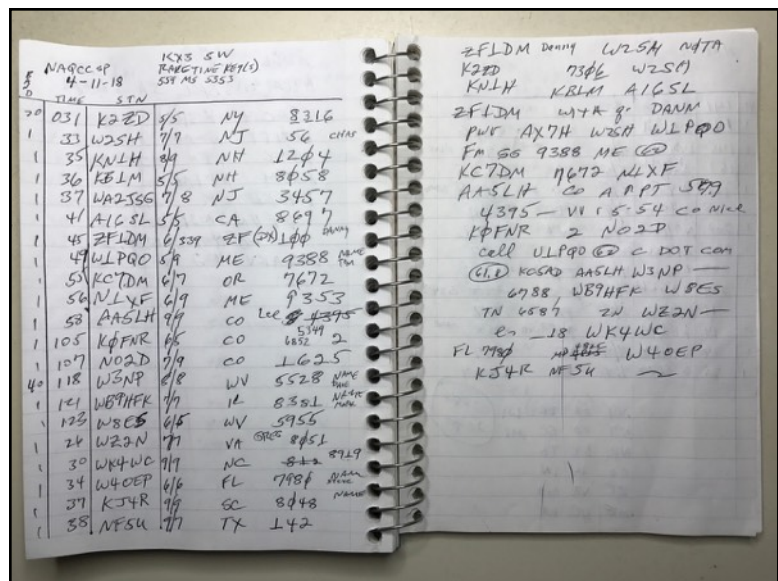 NAQCC SP KX3 5W
4-11-18 RARETINE KEY(S)
559 MS 5353
TIME STN
20 031 K2ZD 5/5 NY 8316
1 33 W2SH 7/7 NJ 56 CHAS
1 35 KN1H 8/9 NH 12Ø4
1 36 KB1M 5/5 NH 8Ø58
1 37 WA2JSG 7/8 NJ 3457
1 41 AI6SL 5/5 CA 8697
1 45 ZF1DM 6/339 ZF (DX) 1ØØ DANNY
1 49 W1PQO 5/9 ME 9388 NAME TOM
1 53 KC7DM 6/7 OR 7672
1 56 N1XF 6/9 ME 9353
1 58 AA5LH 9/9 CO Lee 4395
5349
1 105 KØFNR 6/5 CO 6852 2
1 107 NO2D 7/9 CO 1625
40 118 W3NP 8/8 WV 5528 NAME
1 121 WB9HFK 7/7 IL 8381 MARK
1 123 W8ES 6/5 WV 5955
1 26 WZ2N 7/7 VA 8Ø51
1 30 WK4WC 7/7 NC 8919
1 34 W4OEP 6/6 FL 798Ø NAME
1 37 KJ4R 9/9 SC 8Ø48 NAME
1 38 NF5U 7/7 TX 142
ZF1DM Danny W2SM NØTA
K2ZD 73Ø6 W2SH
KN1H KB1M AI6SL
ZF1DM DANN
PWR AX7H W2SH W1PQO
Fm GG 9388 ME
KC7DM 7672 N1XF
AA5LH CO A PPT 579
4395 — VV 5:54 CO Nice
KØFNR 2 NO2D
cell U1PQO C DOT COM
AA5LH W3NP —
6788 WB9HFK W8ES
TN 6587 ZN WZ2N —
es _18 WK4WC
FL 798Ø W4OEP
KJ4R NF5U ~